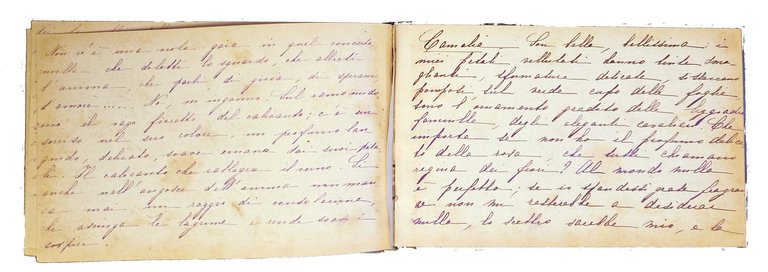 Non c'è una nota gaia in quel concerto,
nulla che diletti lo sguardo, che allieti
l'anima, che parli di gioia, di speranza
d'amore...... No, m'inganno. Sul ramo nudo
il vago fioretto del calicanto; c'è un
sorriso nel suo colore, un profumo lan
guido, delicato, soave emana dai suoi peta
li. Il calicanto che rallegra il verno. Sì
anche nell'angoscia dell'anima non man
ca mai un raggio di consolazione,
che asciuga le lagrime e rende soavi i
sospiri.
Camelia - Son bella, bellissima: i
miei petali vellutati hanno tinte sma
glianti, sfumature delicate, si staccano
pompose sul verde cupo delle foglie
sono l'ornamento gradito delle leggiadre
fanciulle, degli eleganti cavalieri. Che
importa se non ho il profumo delica
to della rosa, che tutti chiamano
regina dei fiori? Al mondo nulla
è perfetto; se io spandessi grate fragran
ze non mi resterebbe a desiderar
nulla, lo scettro sarebbe mio, e la